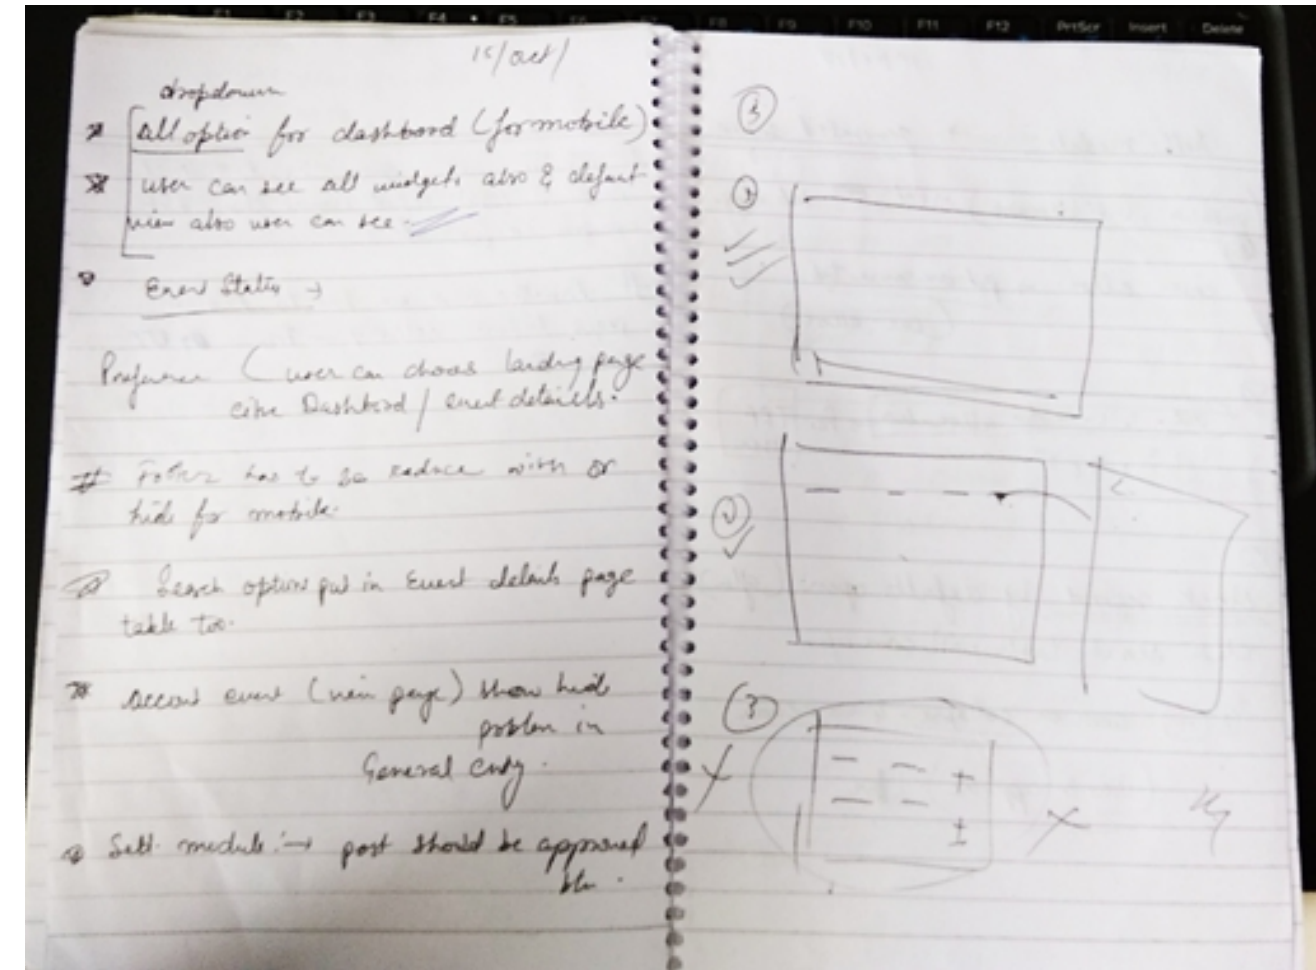 F1 F2 F3 F4 F5 F6 F7 F8 F9 F10 F11 F12 PrtScr Insert Delete
15/oct/
dropdown
all option for dashbord (for mobile)
user can see all widgets also & defaut
view also user can see.
Event Status →
Preference (user can choose landing page
Dashbord / event details.
# Footer has to be reduce with or
hide for mobile.
Search option put in Event details page
table too.
account event (main page) show hide
problem in
General entry.
Sett module :→ post should be approved
①
②
③